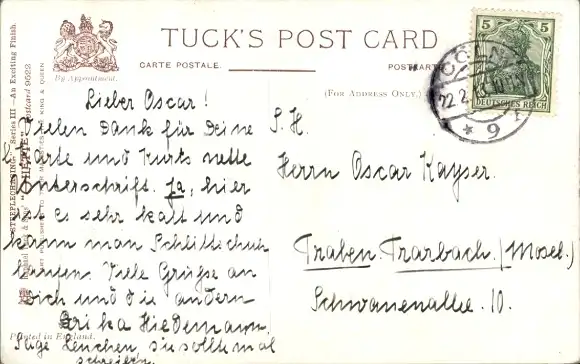 TUCK'S POST CARD
CARTE POSTALE.
POSTKARTE.
(FOR ADDRESS ONLY.)
By Appointment.
"STEEPLECHASING." Series III—An Exciting Finish.
Postcard 9522
Printed in England.
5 5
DEUTSCHES REICH
CÖLN
22.2.
* 9
Lieber Oscar!
Vielen Dank für Deine
Karte und Kurts nette
Unterschrift. Ja, hier
ist es sehr kalt und
kann man Schlittschuh
laufen. Viele Grüsse an
Dich und die andern
Erika Hiedemann.
Sage Lenchen sie sollte mal
schreiben.
S. H.
Herrn Oscar Kayser.
Traben-Trarbach. (Mosel.)
Schwanenallee. 10.